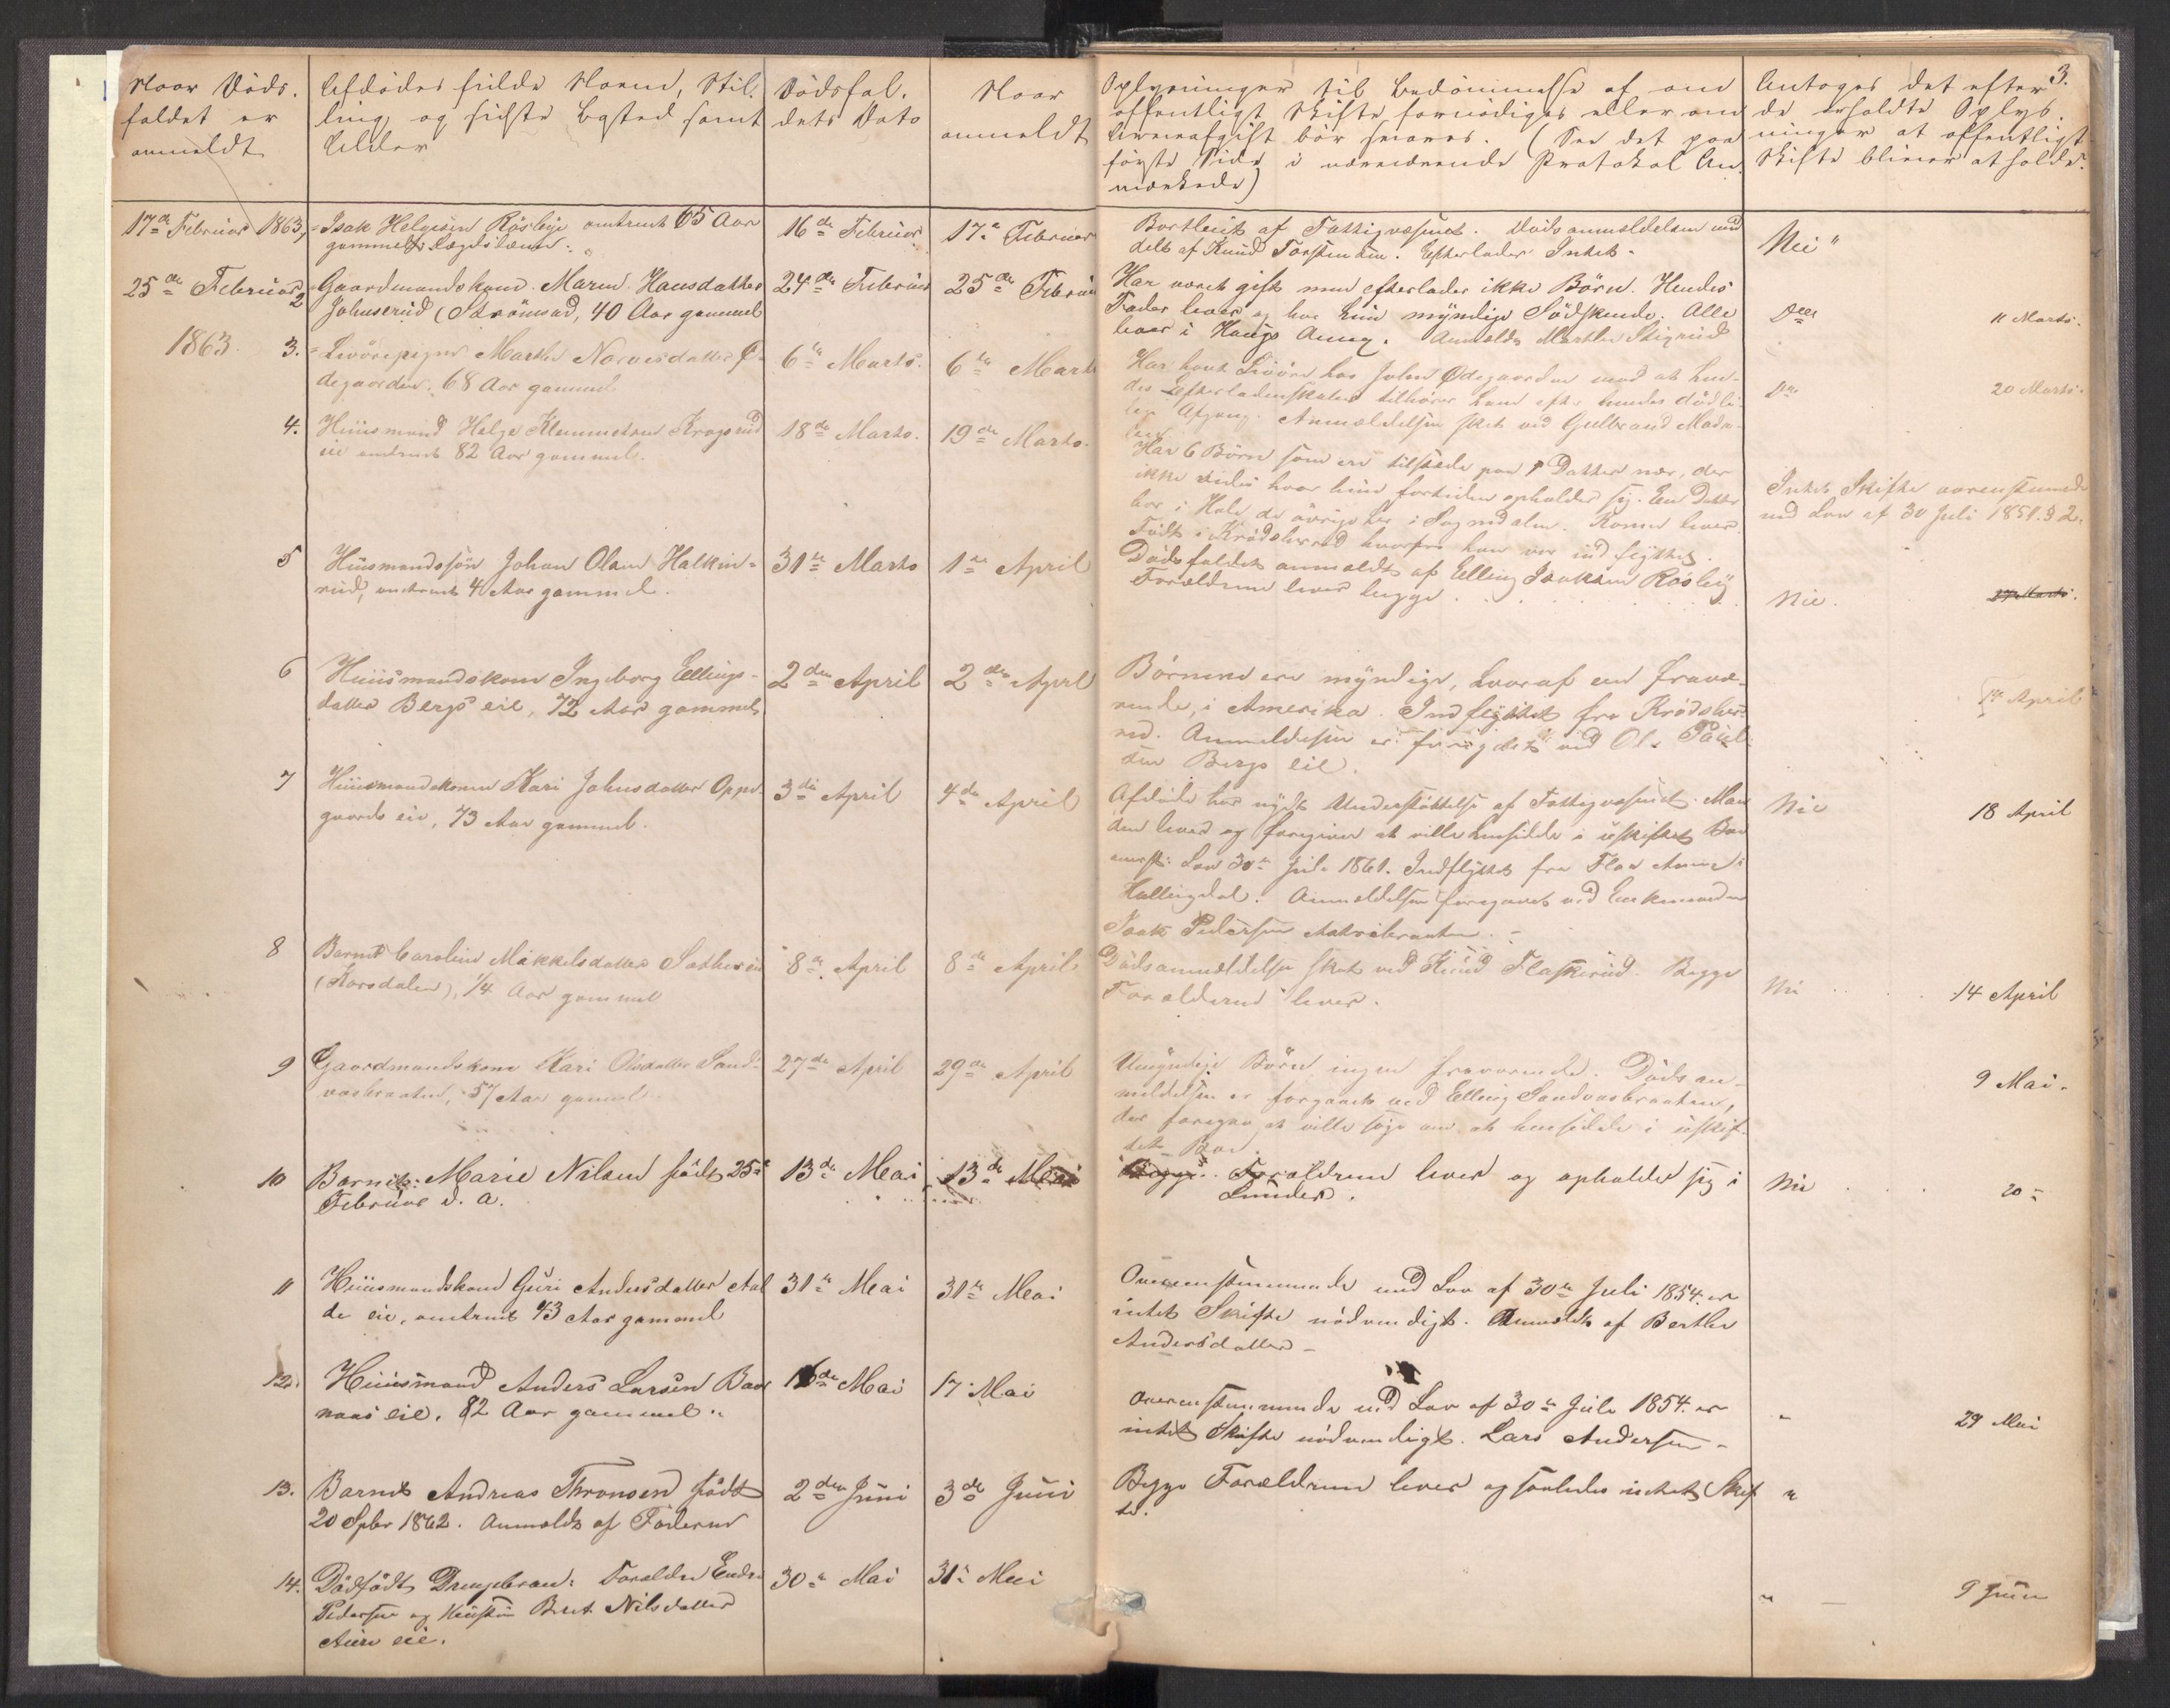 3.
Naar Döds-
faldet er
anmeldt
Afdödes fulde Navn, Stil-
ling, og sidste Bosted samt
Alder
Dödsfal-
dets Dato
Naar
anmeldt
Oplysninger til Bedömmelse af om
offentligt Skifte fornödiges eller om
Arveafgift bör svares. (See det paa
förste Side i nærværende Protokol An-
mærkede)
Antages det efter
de erholdte Oplys-
ninger at offentligt
Skifte bliver at holde.
17de Februar 1863,
Isak Helgesen Rösleje omtrent 65 Aar
gammel Lægdslem.
16de Februar
17de Februar
Bortleiet af Fattigvæsenet. Dödsanmeldelsen med
delt af Knud Torstensen. Efterlader Intet.
Nei "
25de Februar
2
Gaardmandskone Maren Hansdatter
Johnserud (Strömsod, 40 Aar gammel
24de Februar
25de Februar
Har været gift men efterlader ikke Börn. Hendes
Fader lever og har hun myndige Södskende. Alle
lever i Haugs Annex. Anmeldt Marthe Stigerud
Do
11 Marts.
1863
3.
Livörepige Marthe Narvesdatter Ö-
degaarden, 68 Aar gammel
6te Marts.
6te Marts
Har havt Livöre hos John Ödegaarden mod at hen-
des Efterladenskaber tilhörer ham efter hendes dödli-
ge Afgang. Anmeldelsen skeet ved Gulbrand Mads-
sen
Do
20 Marts.
4.
Huusmand Helge Klemmetsen Kragsrud
eie omtrent 82 Aar gammel.
18de Marts.
19de Marts.
Har 6 Börn som ere tilstede paa 1 Datter nær, der
ikke vides hvor hun fortiden opholder sig. En Datter
bor i Hole de övrige her i Sognedalen. Konen lever
Födt i Krödsherred hvorfra han var indflyttet.
Intet Skifte overenstemmende
med Lov af 30 Juli 1851. § 2.
5
Huusmandssön Johan Olsen Halkin-
rud, omtrent 4 Aar gammel.
31te Marts
1ste April
Dödsfaldet anmeldt af Elling Isaksen Rösleij
Forældrene lever begge
Nei.
27 Marts.
6
Huusmandskone Ingeborg Ellings-
datter Bergs eie, 72 Aar gammel
2den April
2den April
Börnene ere myndige, hvoraf een fravæ-
rende, i Amerika. Indflyttet fra Krödsher-
red. Anmeldelsen er foregaaet ved Ole Paul-
sen Bergs eie.
14 April
7
Huusmandskone Kari Johnsdatter Oppe-
gaards eie, 73 Aar gammel.
3die April
4de April
Afdöde har nydt Understöttelse af Fattigvæsenet. Man
den lever og foregiver at ville hensidde i uskiftet Bo
overst: Lov 30te Juli 1851. Indflyttet fra Flaa Annex i
Hallingdal. Anmeldelsen foregaaet ved Enkemanden
Isak Pedersen
Nei
18 April
8
Barnet Caroline Mikkelsdatter Sætherеie
(Korsdalen), 1/4 Aar gammel
8de April
8de April
Dödsanmeldelse skeet ved Knud Flaskerud. Begge
Forældrene lever.
Nei
14 April
9
Gaardmandskone Kari Olsdatter Sand-
vasbraaten, 57 Aar gammel
27de April
29de April
Umyndige Börn, ingen fraværende. Dödsan-
meldelsen er foregaaet ved Elling Sandvasbraaten,
der foregav at ville söge om at hensidde i uskif-
tet Bo.
9 Mai.
10
Barnet: Marie Nilsen födt 25de
Februar d. A.
13de Mai
13de Mai
Begge Forældrene lever og opholder sig i
Lunder.
Nei
20
11
Huusmandskone Guri Andersdatter Aal
de eie, omtrent 43 Aar gammel
31te Mai
31te Mai
Overensstemmende med Lov af 30te Juli 1854. er
intet Skifte nödvendigt. Anmeldt af Berthe
Andersdatter
12.
Huusmand Anders Larsen Baar
naas eie. 82 Aar gammel.
16de Mai
17 Mai
Overensstemmende med Lov af 30te Juli 1854. er
intet Skifte nödvendigt. Lars Andersen
"
29 Mai
13.
Barnet Andreas Thronsen födt
20 Spbr 1862. Anmeldt af Faderen
2den Juni
3die Juni
Begge Forældrene lever og saaledes intet Skif
te.
"
14.
Dödfödt Drengebarn: Forældre Endre
Pedersen og Hustru Berit Nilsdatter
eie.
30te Mai
31te Mai
"
9 Juni